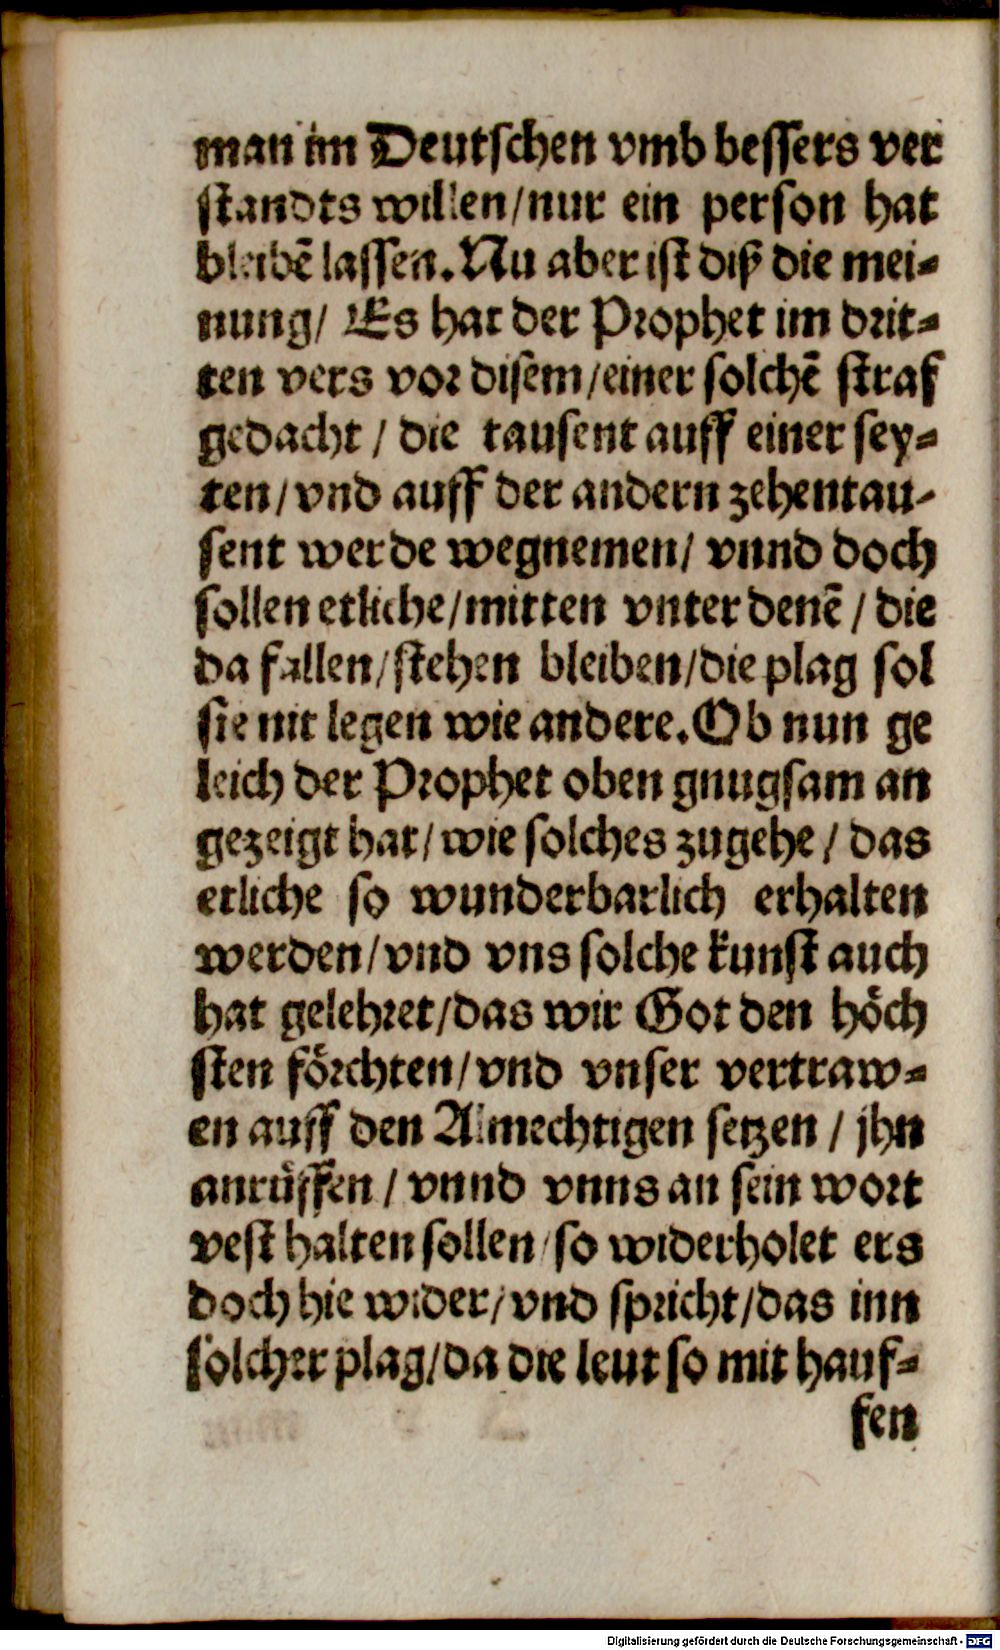 man im Deutschen vmb bessers ver
standts willen/nur ein person hat
bleibẽ lassen. Nu aber ist diß die mei-
nung/ Es hat der Prophet im drit-
ten vers vor disem/einer solchẽ straf
gedacht / die tausent auff einer sey-
ten/vnd auff der andern zehentau-
sent werde wegnemen/ vnnd doch
sollen etliche/mitten vnter denẽ / die
da fallen/stehen bleiben/die plag sol
sie nit legen wie andere. Ob nun ge
leich der Prophet oben gnugsam an
gezeigt hat/wie solches zugehe/ das
etliche so wunderbarlich erhalten
werden/vnd vns solche kunst auch
hat gelehret/das wir Got den hoͤch
sten foͤrchten/vnd vnser vertraw-
en auff den Almechtigen setzen / jhn
anruͤffen / vnnd vnns an sein wort
vest halten sollen/so widerholet ers
doch hie wider/vnd spricht/das inn
solcher plag/da die leut so mit hauf-
fen
Digitalisierung gefördert durch die Deutsche Forschungsgemeinschaft - DFG